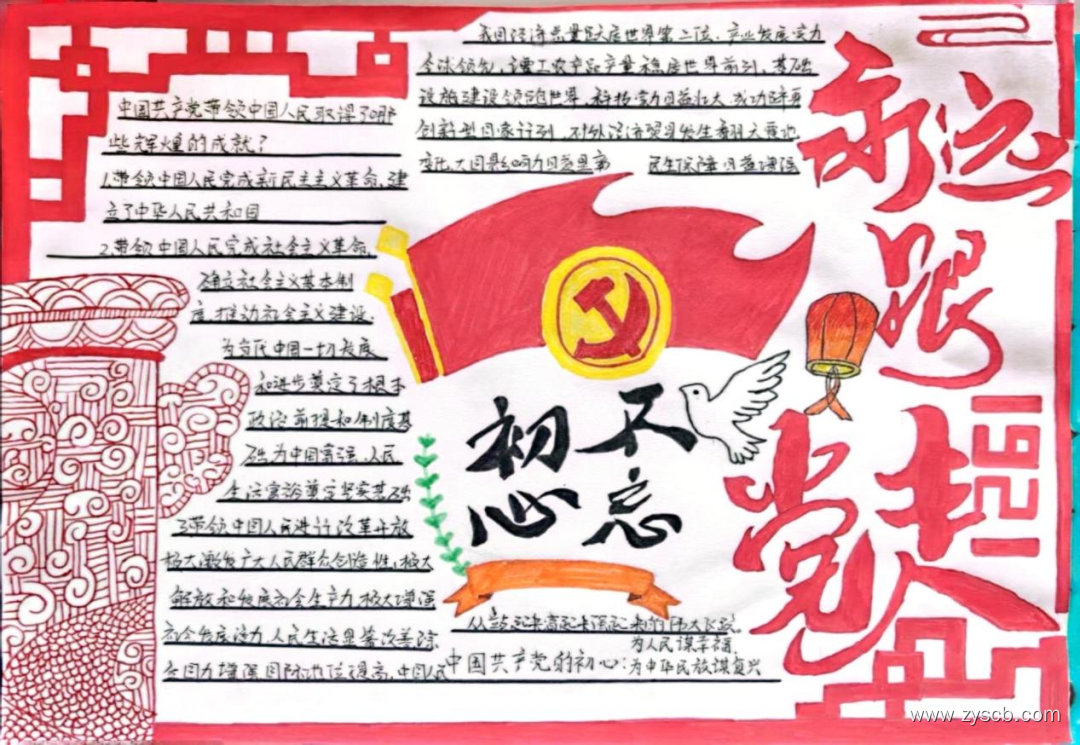 中国共产党带领中国人民取得了哪
些辉煌的成就？
1.带领中国人民完成新民主主义革命，建
立了中华人民共和国
2.带领中国人民完成社会主义革命，
确立社会主义基本制
度，推动社会主义建设，
为当代中国一切发展
和进步奠定了根本
政治前提和制度基
础，为中国富强、人民
生活富裕奠定坚实基础
3.带领中国人民进行改革开放
极大激发广大人民群众创造性，极大
解放和发展社会生产力，极大增强
社会发展活力，人民生活显著改善，综
合国力增强，国际地位提高，中国人民
从站起来富起来强起来的伟大飞跃
我国经济总量稳居世界第二位，产业发展实力
全球领先，谷工农产品产量稳居世界前列，基础
设施建设领跑世界，科技实力日益壮大，成功跻身
创新型国家行列，对外经济贸易发生翻天覆地
变化，大国影响力日益显著 民生保障日益增强
不忘
初心
中国共产党的初心：
为人民谋幸福，
为中华民族谋复兴
永远
跟
党走
1921
www.zyscb.com